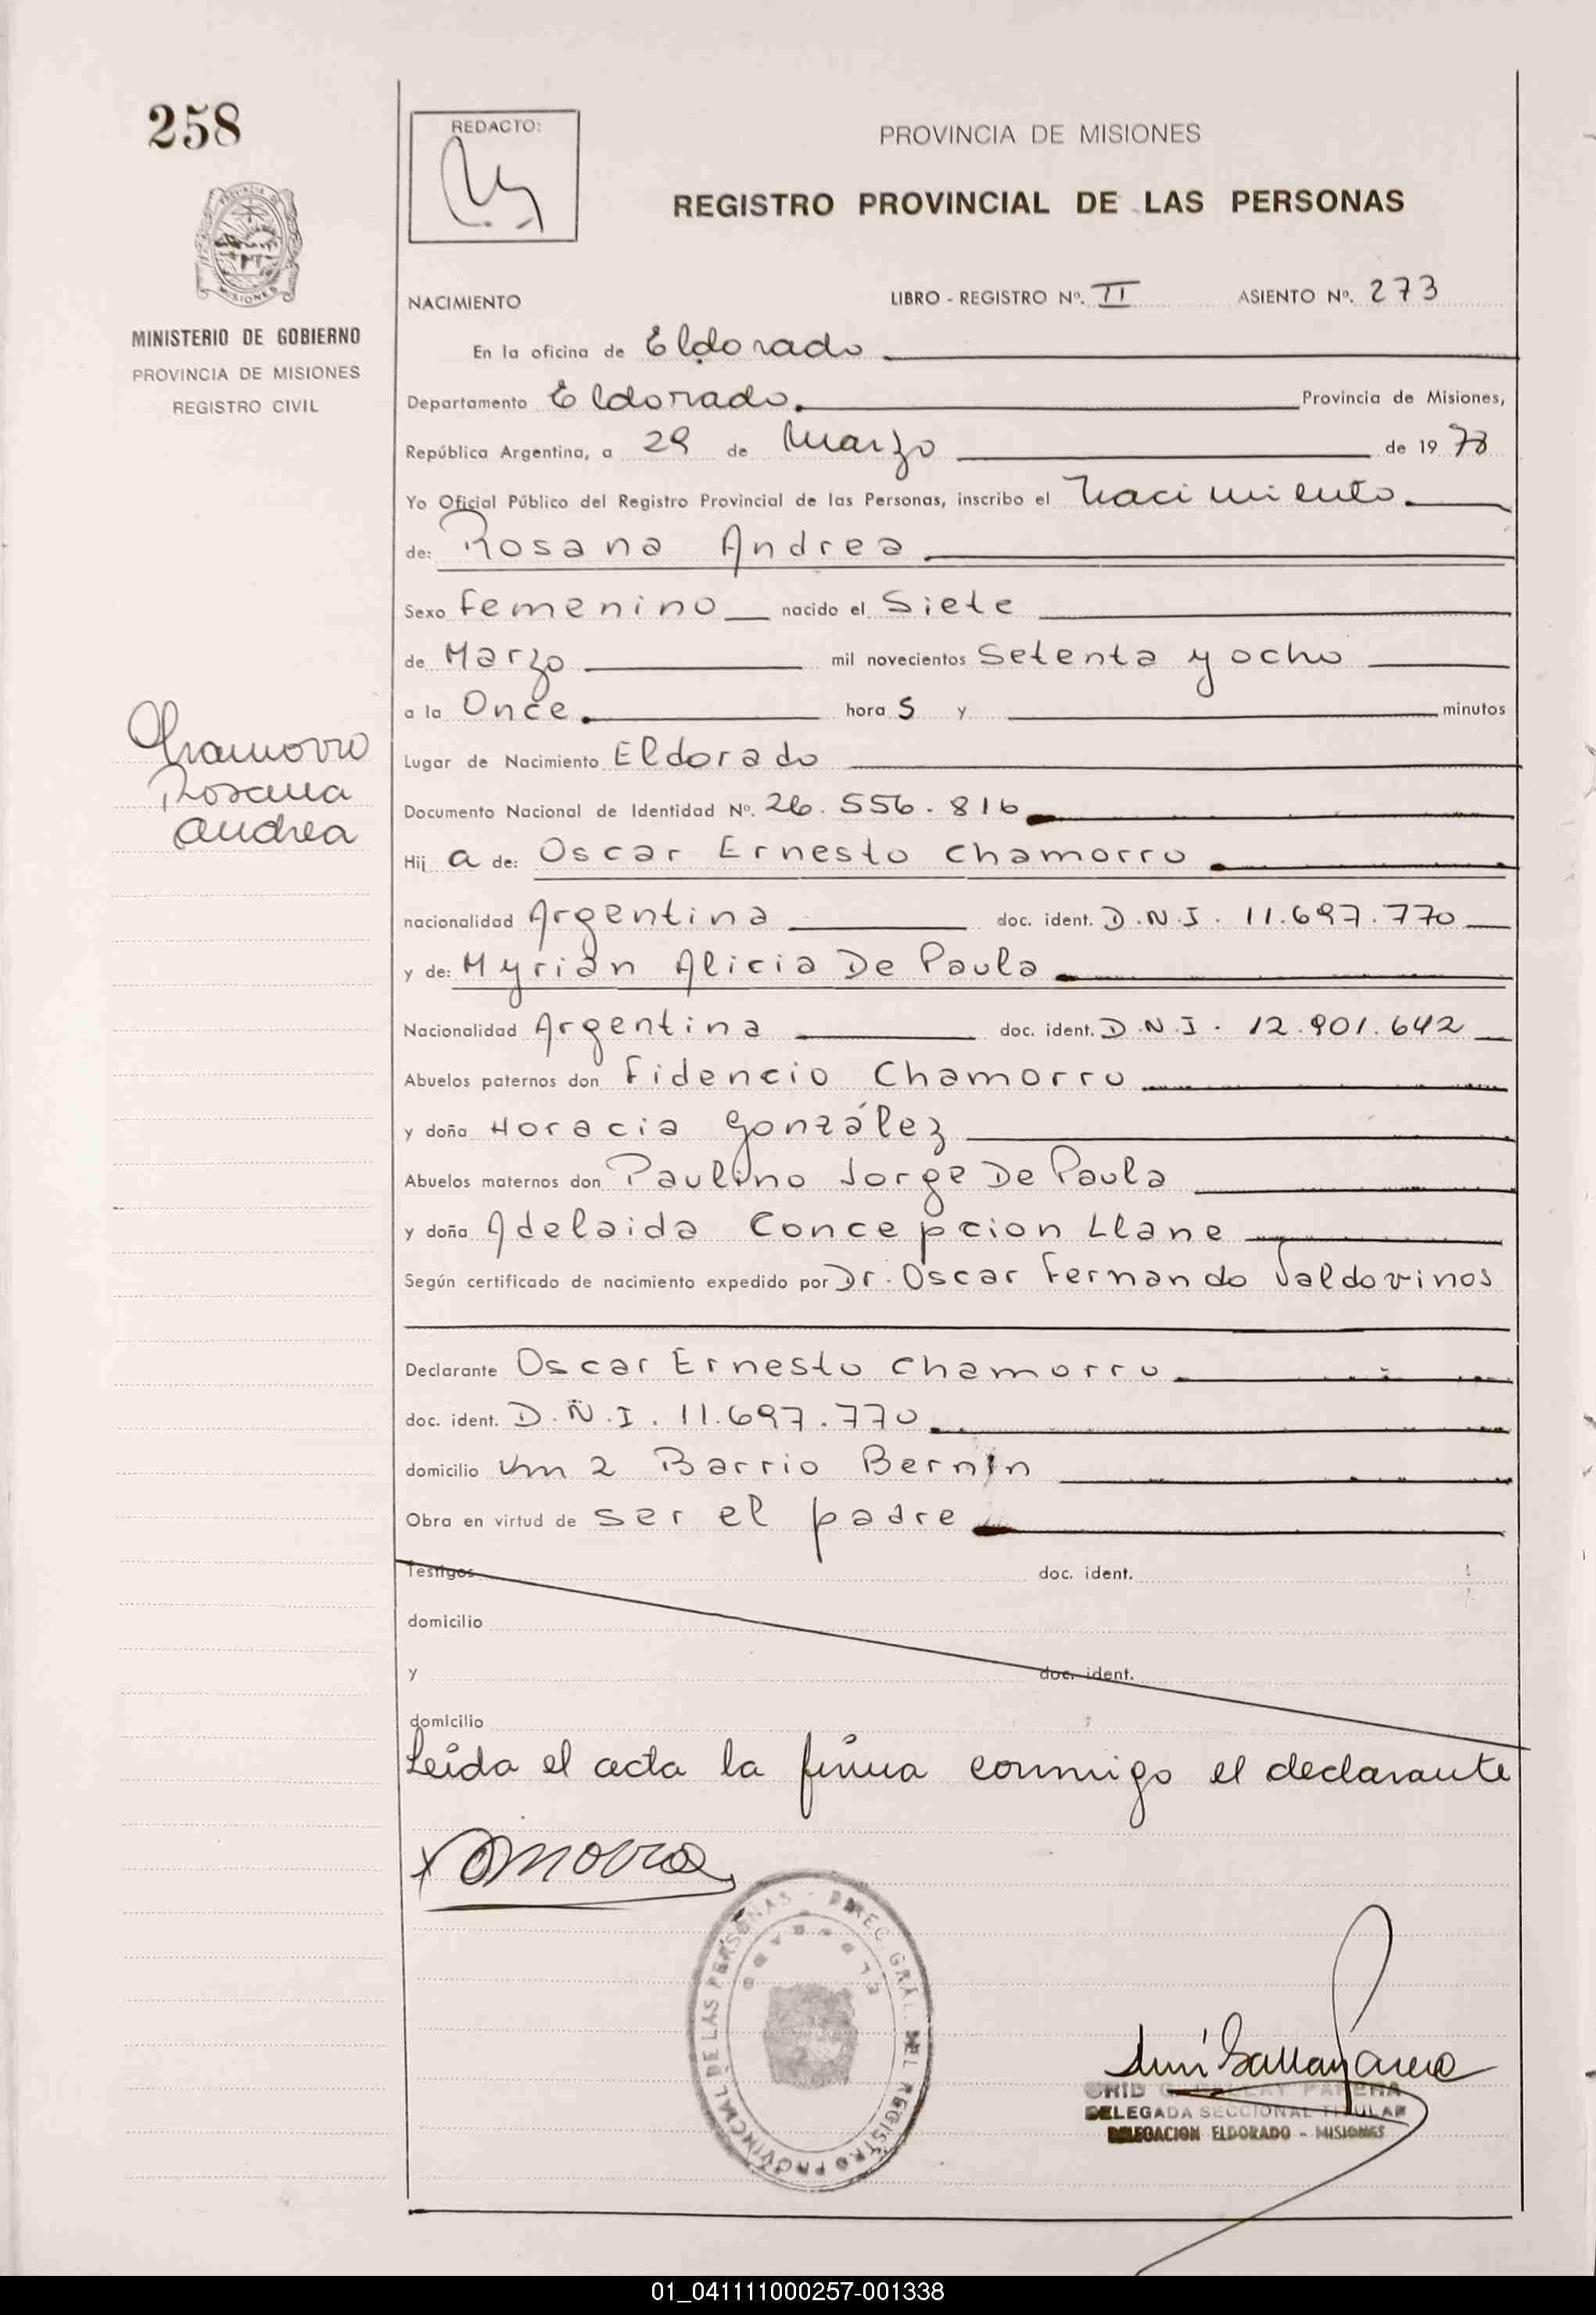 258
REDACTO:
PROVINCIA DE MISIONES
REGISTRO PROVINCIAL DE LAS PERSONAS
PROVINCIA
MISIONES
MINISTERIO DE GOBIERNO
PROVINCIA DE MISIONES
REGISTRO CIVIL
NACIMIENTO LIBRO - REGISTRO Nº. II ASIENTO Nº. 273
En la oficina de Eldorado
Departamento Eldorado. Provincia de Misiones,
República Argentina, a 29 de Marzo de 1978
Yo Oficial Público del Registro Provincial de las Personas, inscribo el Nacimiento.
de: Rosana Andrea
Sexo Femenino nacido el Siete
de Marzo mil novecientos Setenta y ocho
a la Once. hora s y minutos
Lugar de Nacimiento Eldorado
Chamorro
Rosana
Andrea
Documento Nacional de Identidad Nº. 26.556.816
Hij a de: Oscar Ernesto Chamorro
nacionalidad Argentina doc. ident. D.N.I. 11.697.770
y de: Myrian Alicia De Paula
Nacionalidad Argentina doc. ident. D.N.I. 12.901.642
Abuelos paternos don Fidencio Chamorro
y doña Horacia González
Abuelos maternos don Paulino Jorge De Paula
y doña Adelaida Concepcion Llane
Según certificado de nacimiento expedido por Dr. Oscar Fernando Valdovinos
Declarante Oscar Ernesto Chamorro
doc. ident. D.N.I. 11.697.770
domicilio Km 2 Barrio Bernin
Obra en virtud de ser el padre
Testigos doc. ident.
domicilio
y doc. ident.
domicilio
Leída el acta la firma conmigo el declarante
DIREC. GRAL. DEL REGISTRO PROVINCIAL DE LAS PERSONAS
ELDORADO
DELEGADA SECCIONAL TITULAR
DELEGACION ELDORADO - MISIONES
01_041111000257-001338